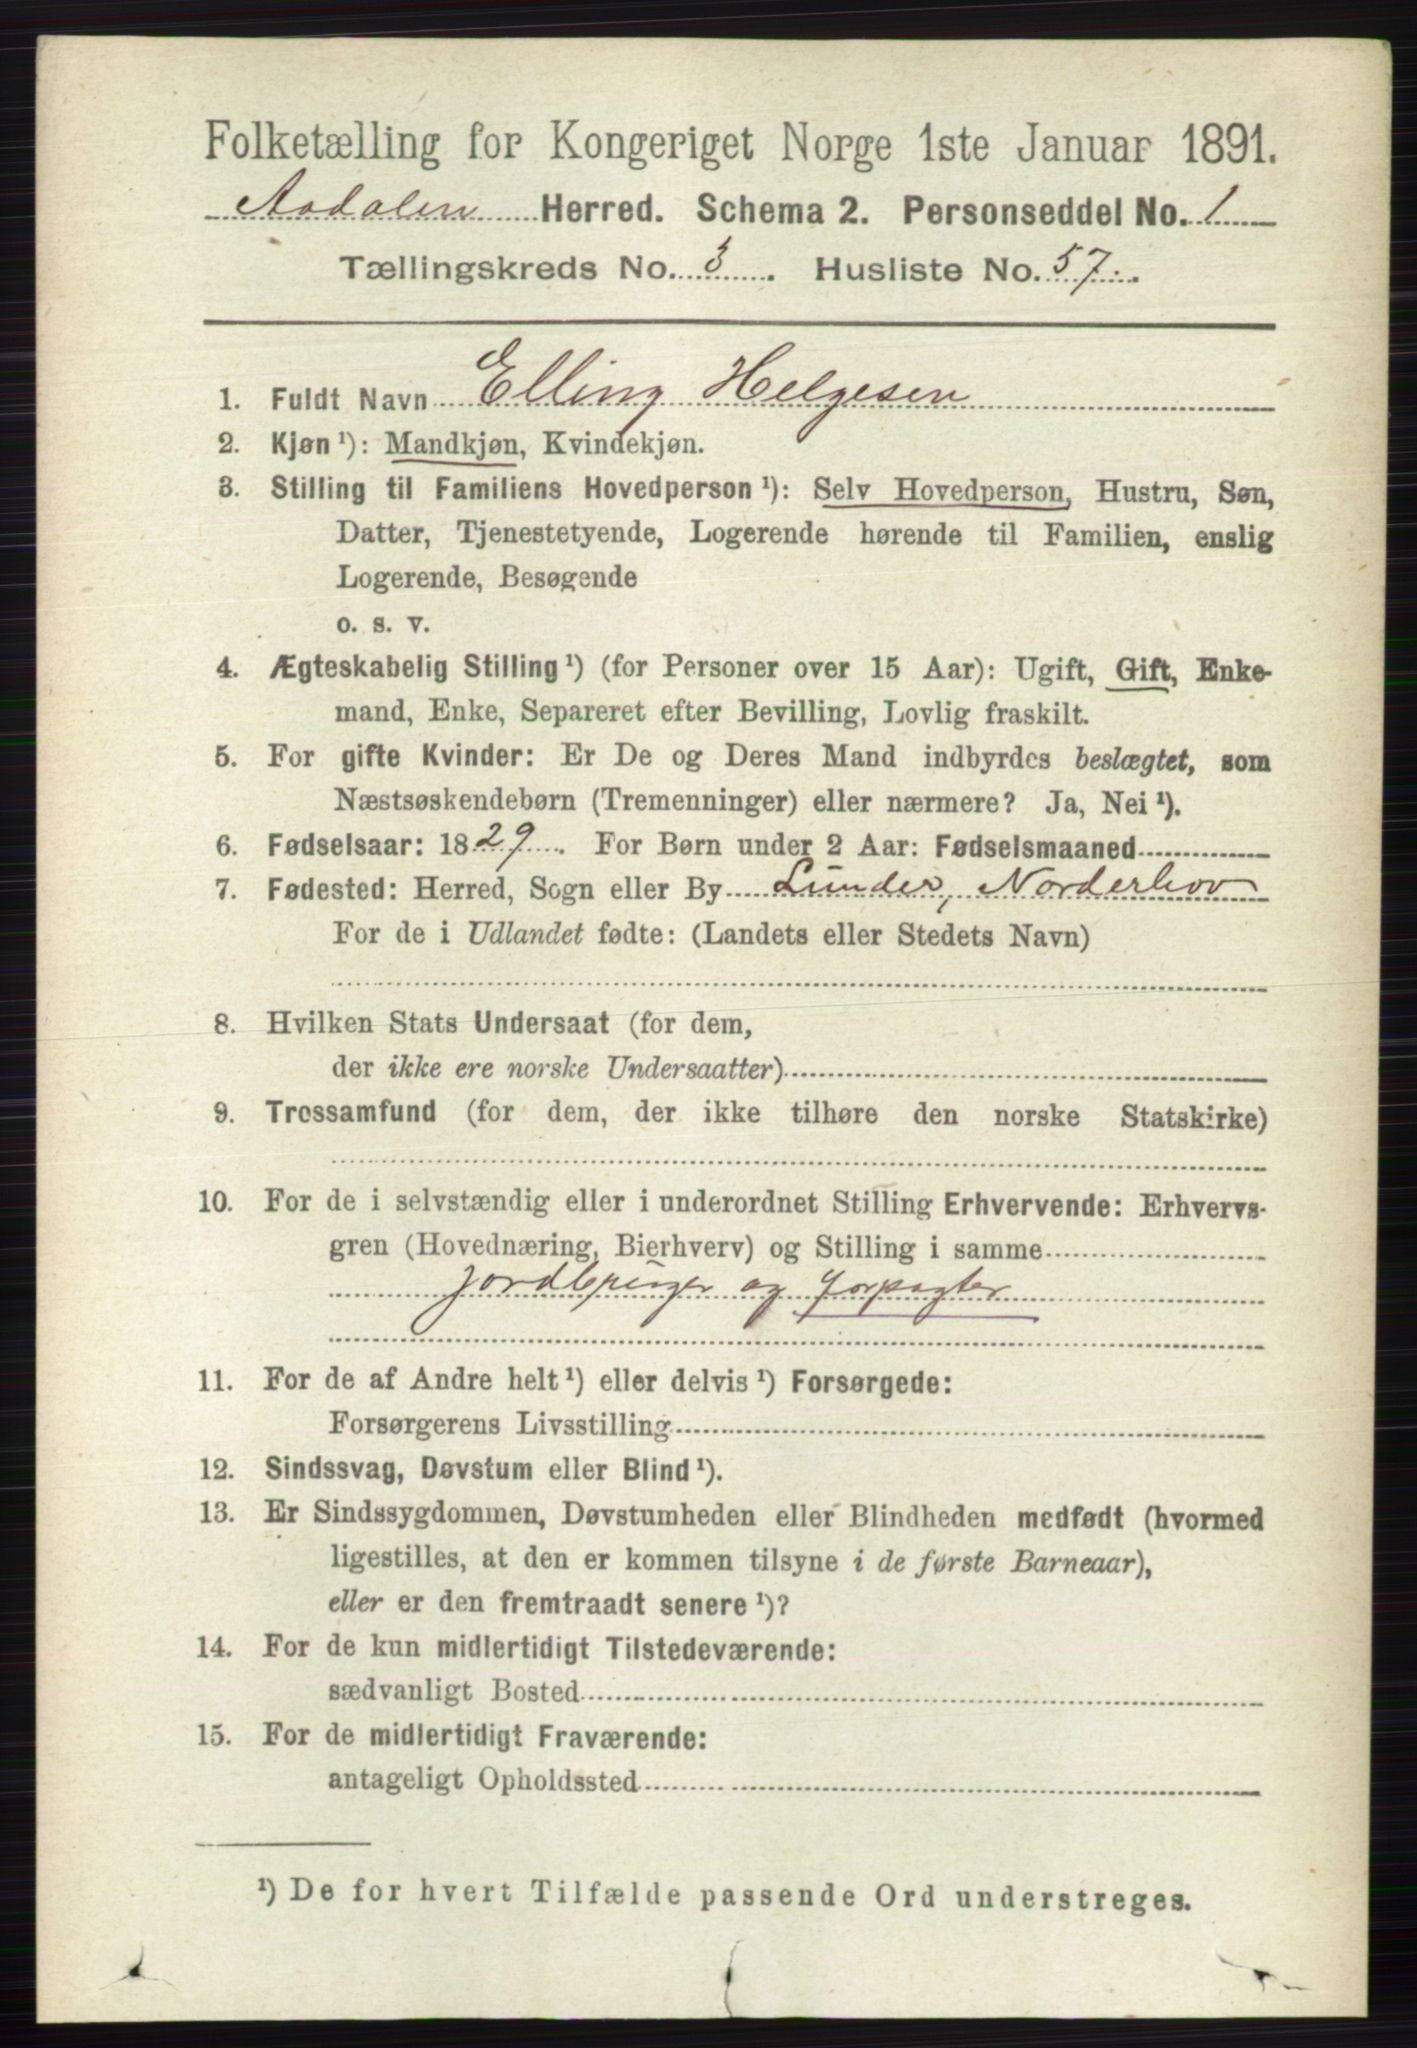 Folketælling for Kongeriget Norge 1ste Januar 1891.
Aadalen Herred. Schema 2. Personseddel No. 1
Tællingskreds No. 3. Husliste No. 57.
1. Fuldt Navn Elling Helgesen
2. Kjøn¹): Mandkjøn, Kvindekjøn.
3. Stilling til Familiens Hovedperson¹): Selv Hovedperson, Hustru, Søn,
Datter, Tjenestetyende, Logerende hørende til Familien, enslig
Logerende, Besøgende
o. s. v.
4. Ægteskabelig Stilling¹) (for Personer over 15 Aar): Ugift, Gift, Enke-
mand, Enke, Separeret efter Bevilling, Lovlig fraskilt.
5. For gifte Kvinder: Er De og Deres Mand indbyrdes beslægtet, som
Næstsøskendebørn (Tremenninger) eller nærmere? Ja, Nei¹).
6. Fødselsaar: 1829. For Børn under 2 Aar: Fødselsmaaned
7. Fødested: Herred, Sogn eller By Lunder, Norderhov
For de i Udlandet fødte: (Landets eller Stedets Navn)
8. Hvilken Stats Undersaat (for dem,
der ikke ere norske Undersaatter)
9. Trossamfund (for dem, der ikke tilhøre den norske Statskirke)
10. For de i selvstændig eller i underordnet Stilling Erhvervende: Erhvervs-
gren (Hovednæring, Bierhverv) og Stilling i samme
Jordbruger og Forpagter
11. For de af Andre helt¹) eller delvis¹) Forsørgede:
Forsørgerens Livsstilling
12. Sindssvag, Døvstum eller Blind¹).
13. Er Sindssygdommen, Døvstumheden eller Blindheden medfødt (hvormed
ligestilles, at den er kommen tilsyne i de første Barneaar),
eller er den fremtraadt senere¹)?
14. For de kun midlertidigt Tilstedeværende:
sædvanligt Bosted
15. For de midlertidigt Fraværende:
antageligt Opholdssted
¹) De for hvert Tilfælde passende Ord understreges.